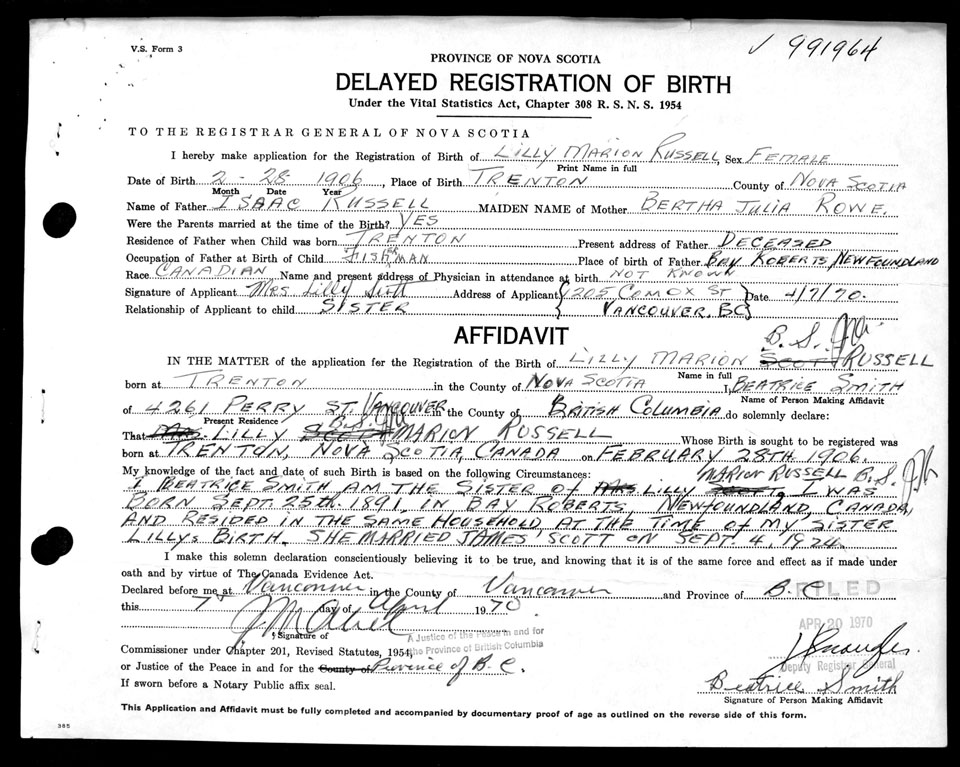 V.S. Form 3
√ 991964
PROVINCE OF NOVA SCOTIA
DELAYED REGISTRATION OF BIRTH
Under the Vital Statistics Act, Chapter 308 R. S. N. S. 1954
TO THE REGISTRAR GENERAL OF NOVA SCOTIA
I hereby make application for the Registration of Birth of LILLY MARION RUSSELL, Sex FEMALE
Print Name in full
Date of Birth 2 - 28 1906, Place of Birth TRENTON County of NOVA SCOTIA
Month Date Year
Name of Father ISAAC RUSSELL MAIDEN NAME of Mother BERTHA JULIA ROWE.
Were the Parents married at the time of the Birth? YES
Residence of Father when Child was born TRENTON Present address of Father DECEASED
Occupation of Father at Birth of Child FISHMAN Place of birth of Father BAY ROBERTS, NEWFOUNDLAND
Race CANADIAN Name and present address of Physician in attendance at birth NOT KNOWN
Signature of Applicant Mrs Lilly Address of Applicant { 1205 COMOX ST } Date 4/7/70.
Relationship of Applicant to child SISTER { VANCOUVER. BC }
AFFIDAVIT
B. S.
IN THE MATTER of the application for the Registration of the Birth of LILLY MARION SCOTT RUSSELL
Name in full
born at TRENTON in the County of NOVA SCOTIA I, BEATRICE SMITH
Name of Person Making Affidavit
of 4261 PERRY ST. VANCOUVER in the County of BRITISH COLUMBIA do solemnly declare:
Present Residence B. S.
That MRS. LILLY SCOTT MARION RUSSELL Whose Birth is sought to be registered was
born at TRENTON, NOVA SCOTIA, CANADA on FEBRUARY 28TH 1906.
My knowledge of the fact and date of such Birth is based on the following Circumstances: MARION RUSSELL B. S.
I BEATRICE SMITH AM THE SISTER OF MRS LILLY SCOTT, I WAS
BORN SEPT. 25TH. 1891, IN BAY ROBERTS, NEWFOUNDLAND, CANADA,
AND RESIDED IN THE SAME HOUSEHOLD AT THE TIME OF MY SISTER
LILLYS BIRTH. SHE MARRIED JAMES SCOTT ON SEPT. 4, 1924.
I make this solemn declaration conscientiously believing it to be true, and knowing that it is of the same force and effect as if made under
oath and by virtue of The Canada Evidence Act.
Declared before me at Vancouver in the County of Vancouver and Province of B.C
FILED
this 7 day of April 1970
APR 20 1970
Signature of
A Justice of the Peace in and for
the Province of British Columbia
Commissioner under Chapter 201, Revised Statutes, 1954,
Deputy Registrar General
or Justice of the Peace in and for the County of Province of B.C.
If sworn before a Notary Public affix seal.
Beatrice Smith
Signature of Person Making Affidavit
This Application and Affidavit must be fully completed and accompanied by documentary proof of age as outlined on the reverse side of this form.
385